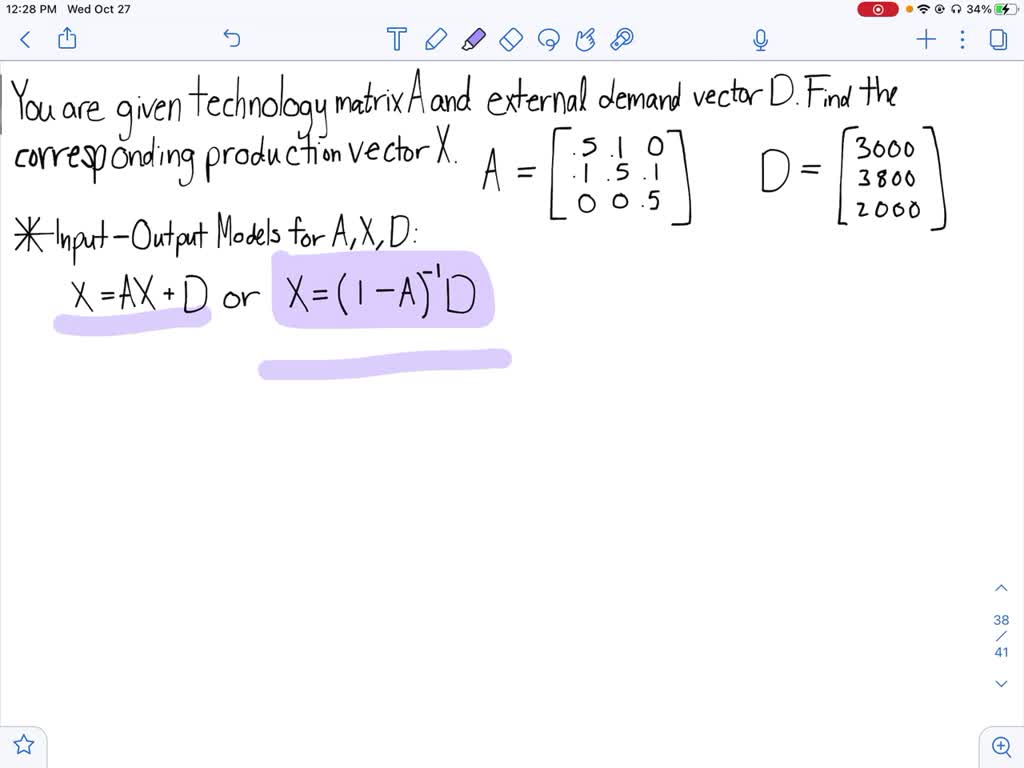 12:28 PM Wed Oct 27
34%
You are given technology matrix A and external demand vector D. Find the
corresponding production vector X.
A = [.5 .1 0
.1 .5 .1
0 0 .5]
D = [3000
3800
2000]
* Input-Output Models for A, X, D:
X = AX + D or X = (1 - A)⁻¹ D
38
/
41